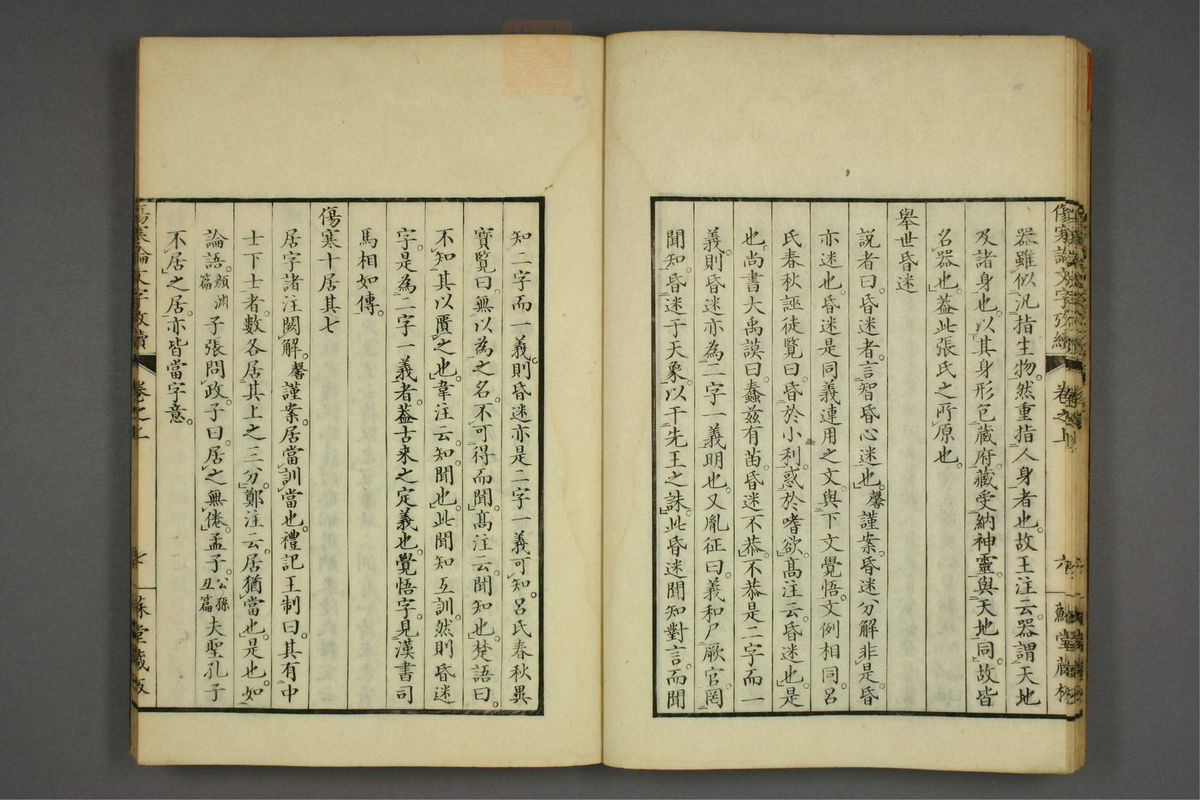 器雖似汎指生物然重指人身者也故王注云器謂天地
及諸身也以其身形包藏府藏受納神靈與天地同故皆
名器也葢此張氏之所原也
舉世昏迷
説者曰昏迷者言智昏心迷也馨謹案昏迷分解非是昏
亦迷也昏迷是同義連用之文與下文覺悟文例相同呂
氏春秋誣徒覧曰昏於小利惑於嗜欲高注云昏迷也是
也尚書大禹謨曰蠢兹有苗昏迷不恭不恭是二字而一
義則昏迷亦為二字一義明也又胤征曰義和尸厥官罔
聞知昏迷于天象以干先王之誅此昏迷聞知對言而聞
傷寒論文字攷續
卷之上
六
蘇堂藏板
知二字而一義則昏迷亦是二字一義可知呂氏春秋異
寶覧曰無以為之名不可得而聞高注云聞知也楚語曰
不知其以匱之也韋注云知聞也此聞知互訓然則昏迷
字是為二字一義者葢古来之定義也覺悟字見漢書司
馬相如傳
傷寒十居其七
居字諸注闕解馨謹案居當訓當也禮記王制曰其有中
士下士者數各居其上之三分鄭注云居猶當也是也如
論語顔淵篇子張問政子曰居之無倦孟子公孫丑篇夫聖孔子
不居之居亦皆當字意
傷寒論文字攷續
卷之上
七
蘇堂藏板